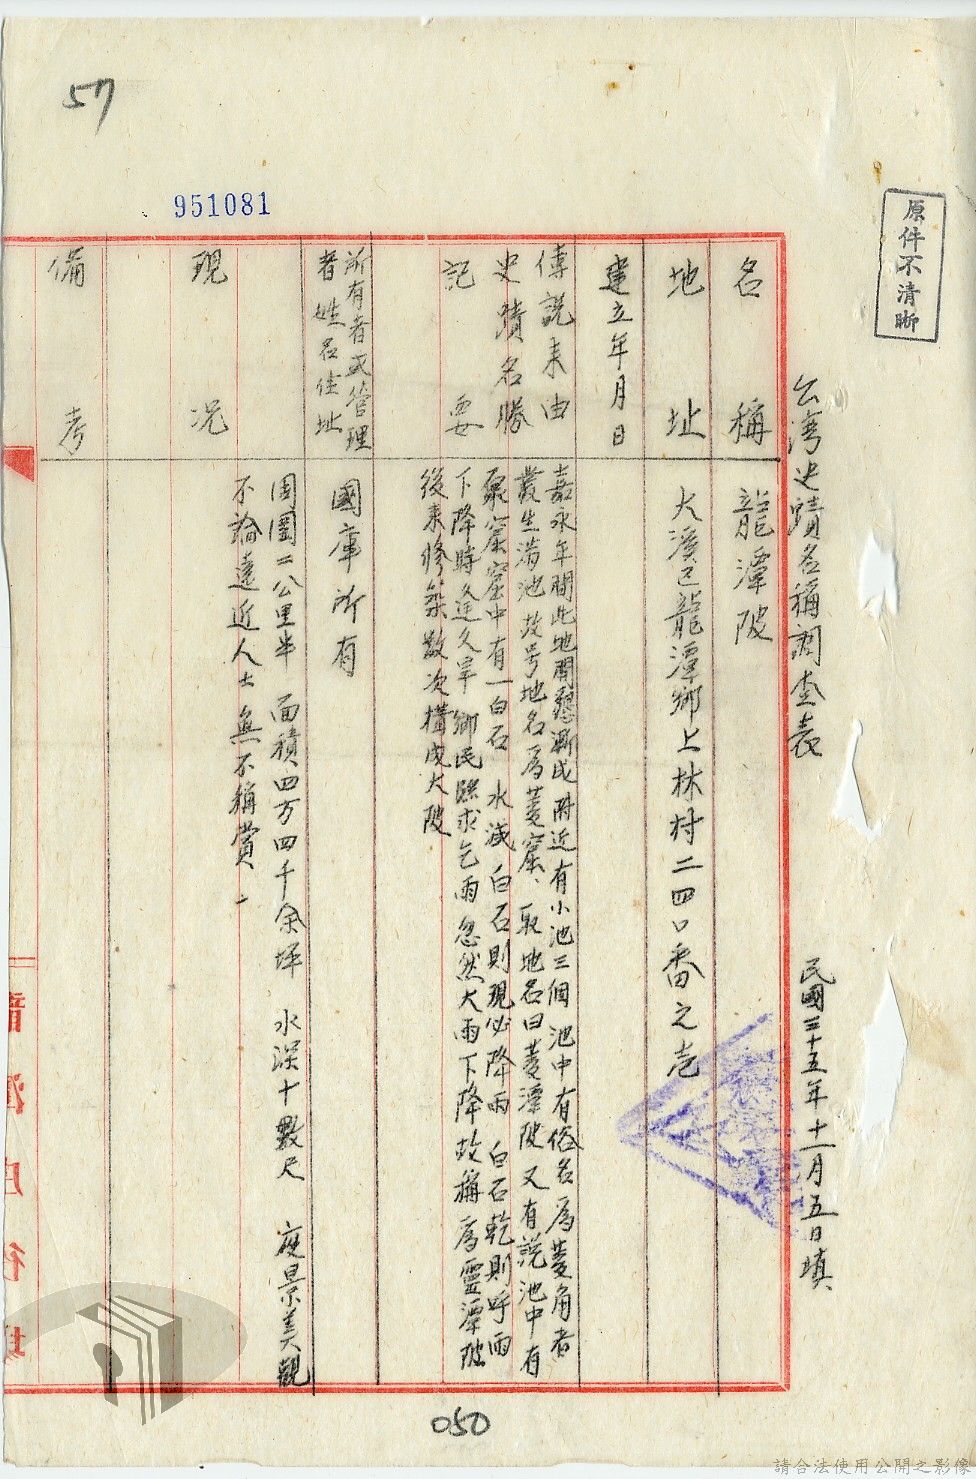 57
951081
原件不清晰
台灣史蹟名稱調查表
民國三十五年十一月五日填
名稱
龍潭陂
地址
大溪區龍潭鄉上林村二四〇番之壱
建立年月日
傳說来由
史蹟名勝
記要
嘉永年間此地開墾漸成附近有小池三個池中有俗名為菱角者
叢生满池故号地名為菱窟、取地名曰菱潭陂又有說池中有
泉窟窟中有一白石 水減白石則現必降雨 白石乾則呼雨
下降時逢久旱鄉民臨求乞雨忽然大雨下降故稱為靈潭陂
後来修築数次構成大陂
所有者或管理
者姓名住址
國庫所有
現况
周圍二公里半 面積四万四千余坪 水深十數尺 夜景美觀
不論遠近人士無不稱賞、
備考
050
請合法使用公開之影像